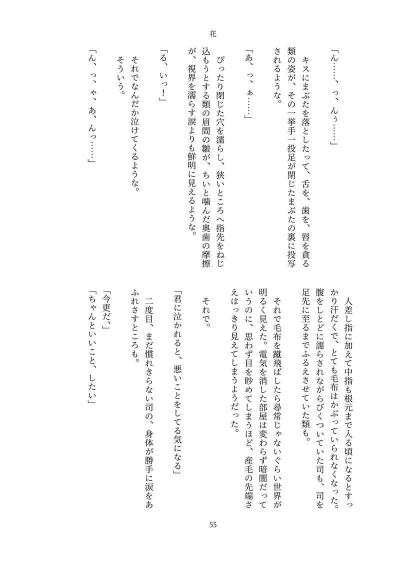 花
「ん……、っ、んぅ……」
　キスにまぶたを落としたって、舌を、歯を、唇を貪る
類の姿が、その一挙手一投足が閉じたまぶたの裏に投写
されるような。
「あ、っ、ぁ……」
　ぴったり閉じた穴を濡らし、狭いところへ指先をねじ
込もうとする類の眉間の皺が、ちいと噛んだ奥歯の摩擦
が、視界を濡らす涙よりも鮮明に見えるような。
「る、いっ！」
　それでなんだか泣けてくるような。
　そういう。
「ん、っ、ゃ、あ、んっ……」
　人差し指に加えて中指も根元まで入る頃になるとすっ
かり汗だくで、とても毛布はかぶっていられなくなった。
腹をしとどに濡らされながらびくついていた司も、司を
足先に至るまでふるえさせていた類も。
　それで毛布を蹴飛ばしたら尋常じゃないぐらい世界が
明るく見えた。電気を消した部屋は変わらず暗闇だって
いうのに、思わず目を眇めてしまうほど、産毛の先端さ
えはっきり見えてしまうようだった。
　それで。
「君に泣かれると、悪いことをしてる気になる」
　二度目、まだ慣れきらない司の、身体が勝手に涙をあ
ふれさすところも。
「今更だ、」
「ちゃんといいこと、したい」
55